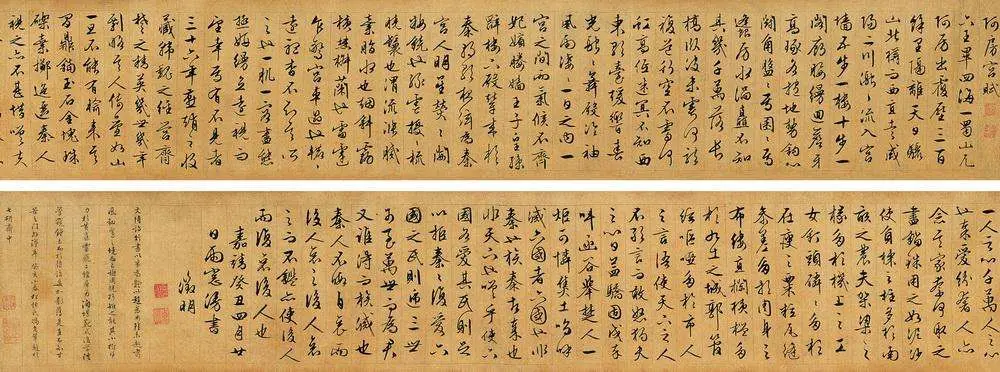 阿房宮賦
六王畢四海一蜀山兀
阿房出覆壓三百
餘里隔離天日驪
山北搆而西直走咸
陽二川溶溶流入宮
牆五步一樓十步一
閣廊腰縵迴簷牙
高啄各抱地勢鉤心
鬥角盤盤焉囷囷焉
蜂房水渦矗不知
其幾千萬落長
橋臥波未雲何龍
複道行空不霽何
虹高低迷冥不知西
東歌臺暖響春
光融融舞殿冷袖
風雨淒淒一日之內一
宮之間而氣候不齊
妃嬪媵嬙王子皇孫
辭樓下殿輦來於
秦朝歌夜絃為秦
宮人明星熒熒開
妝鏡也綠雲擾擾梳
曉鬟也渭流漲膩
棄脂水也煙斜霧
橫焚椒蘭也雷霆
乍驚宮車過也轆轆
遠聽杳不知其所
之也一肌一容盡態
極妍縵立遠視而
望幸焉有不見者
三十六年燕趙之收
藏韓魏之經營齊
楚之精英幾世幾年
剽掠其人倚疊如山
一旦不能有輸來其
間鼎鐺玉石金塊珠
礫棄擲邐迤秦人
視之亦不甚惜嗟乎
一人之心千萬人之心
也秦愛紛奢人亦
念其家奈何取之
盡錙銖用之如泥沙
使負棟之柱多於南
畝之農夫架梁之
椽多於機上之工
女釘頭磷磷多於
在庾之粟粒瓦縫
參差多於周身之
帛縷直欄橫檻多
於九土之城郭管
絃嘔啞多於市人
之言語使天下之人
不敢言而敢怒獨夫
之心日益驕固戍卒
叫函谷舉楚人一
炬可憐焦土嗚呼
滅六國者六國也非
秦也族秦者秦也
非天下也嗟乎使六
國各愛其民則足
以拒秦秦復愛六
國之民則遞三世
可至萬世而為君
誰得而族滅也
秦人不暇自哀而
後人哀之後人哀
之而不鑑亦使後人
而復哀後人也
嘉靖癸丑四月廿
日雨窗漫書
徵明